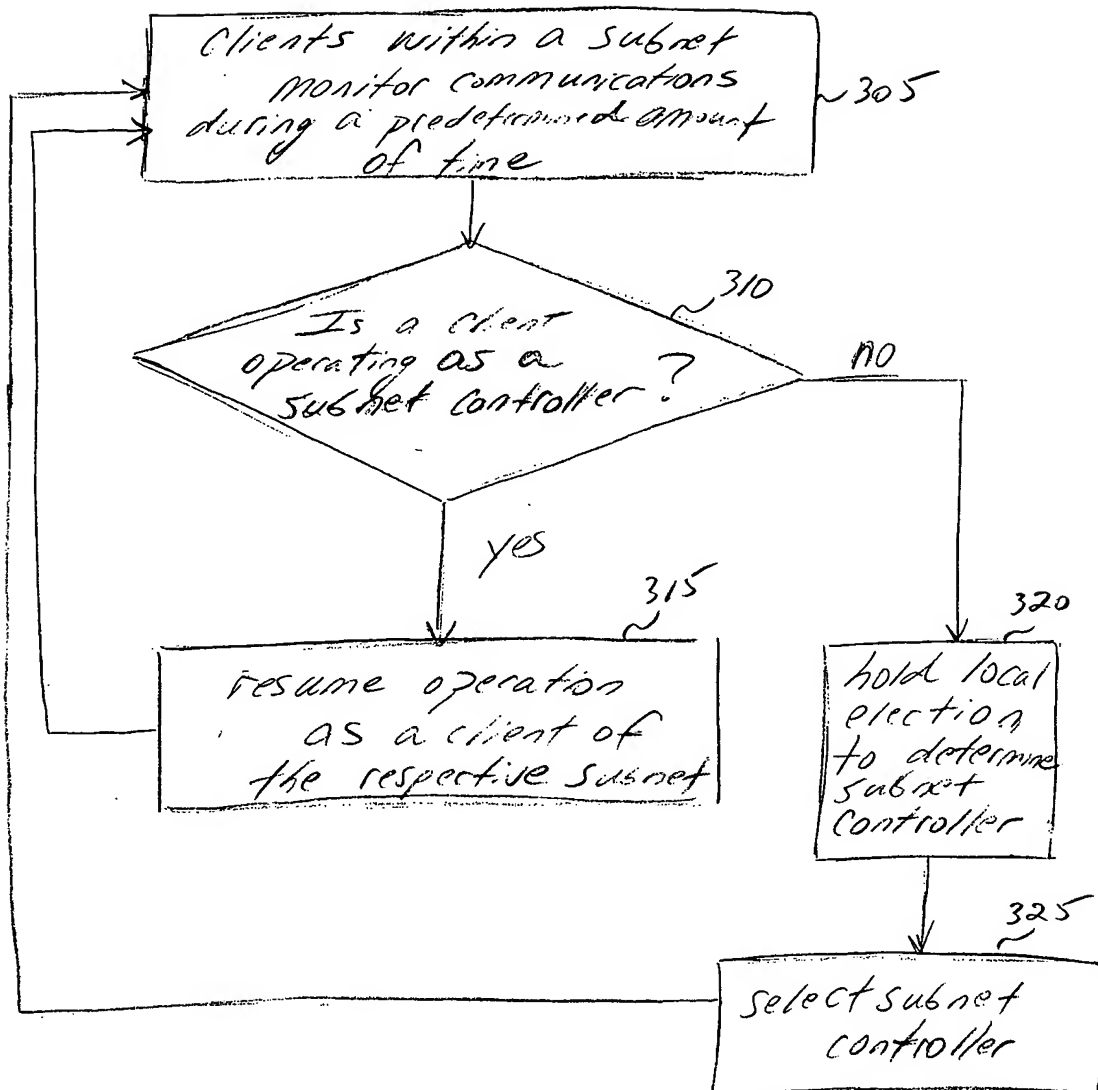 Clients within a subnet
monitor communications
during a predetermined amount
of time
305
310
Is a client
operating as a
subnet controller?
no
yes
315
resume operation
as a client of
the respective subnet
320
hold local
election
to determine
subnet
controller
325
select subnet
controller